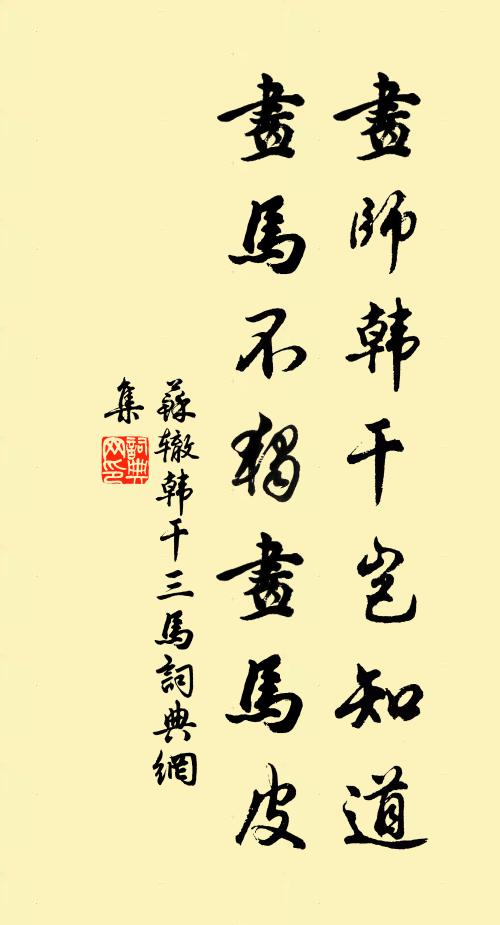 畫師韩干岂知道
畫馬不獨畫馬皮
蘇辙韩干三馬詞典網
集
詞典
网印